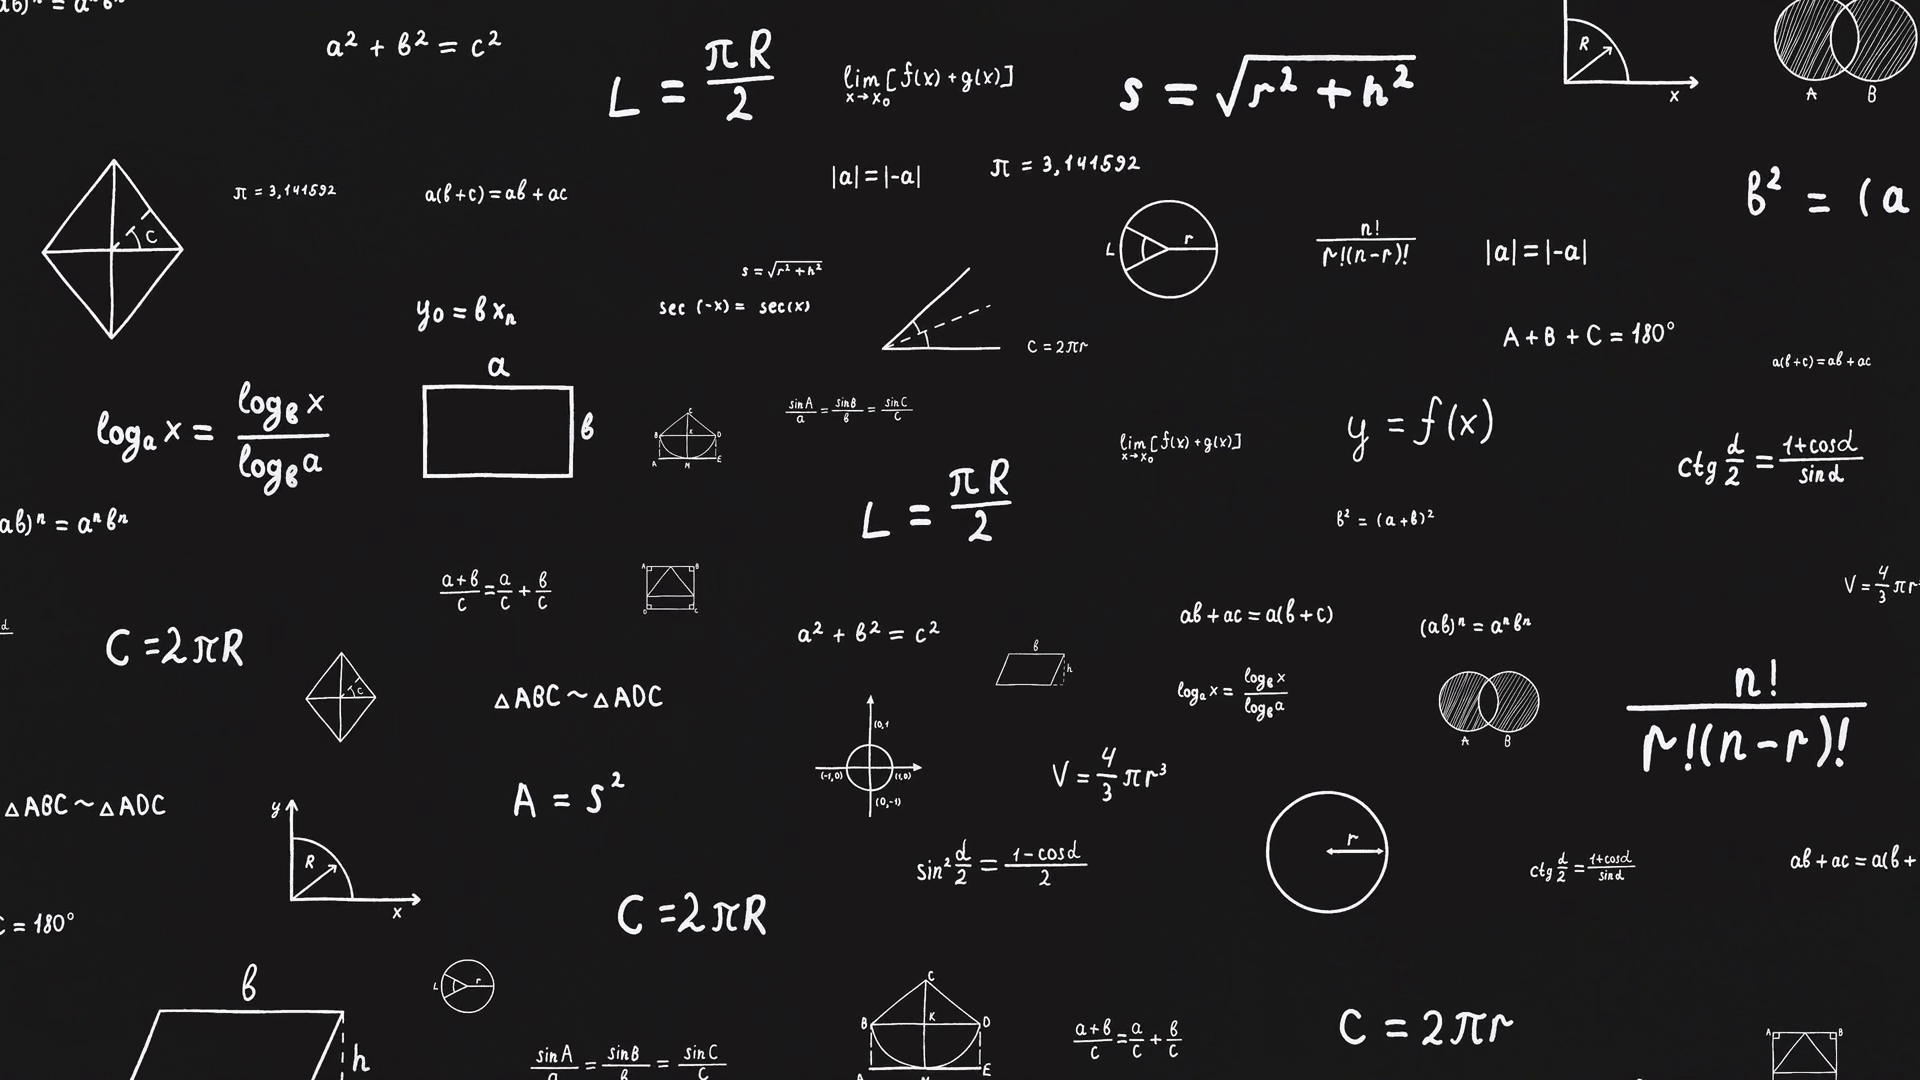 ab)ⁿ = aⁿbⁿ
a² + b² = c²
L = πR/2
lim x→x₀ [f(x) + g(x)]
s = √(r² + h²)
R
x
A B
π = 3,141592
a(b+c) = ab + ac
|a| = |-a|
π = 3,141592
b² = (a
C
L r
n!/r!(n-r)!
|a| = |-a|
s = √(r² + h²)
y₀ = b xₙ
sec (-x) = sec(x)
C = 2πr
A + B + C = 180°
a(b+c) = ab + ac
a
b
logₐ x = log_b x / log_b a
C
B K D
A M E
sin A/a = sin B/b = sin C/c
lim x→x₀ [f(x) + g(x)]
y = f(x)
ctg d/2 = 1+cosd/sind
L = πR/2
b² = (a+b)²
ab)ⁿ = aⁿbⁿ
a+b/c = a/c + b/c
A B
D C
V = 4/3 πr
d
C = 2πR
C
a² + b² = c²
b
h
ab + ac = a(b+c)
(ab)ⁿ = aⁿbⁿ
△ABC ~ △ADC
logₐ x = log_b x / log_b a
A B
n!/r!(n-r)!
(0,1
(-1,0) (1,0)
(0,-1)
V = 4/3 πr³
△ABC ~ △ADC
y
R
x
A = s²
sin² d/2 = 1-cosd/2
r
ctg d/2 = 1+cosd/sind
ab + ac = a(b+
C = 180°
C = 2πR
b
h
L r
sin A/a = sin B/b = sin C/c
C
B K D
A M E
a+b/c = a/c + b/c
C = 2πr
A B